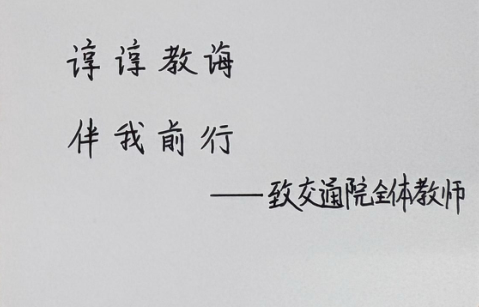 谆谆教诲
伴我前行
——致交通院全体教师